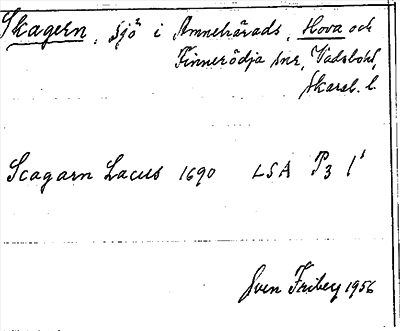 Skagern, sjö i Amnehärads, Hova och
Finnerödja snr, Vadsbohd,
Skarab. l.
Scagarn Lacus 1690 LSA P3 1¹
Sven Friberg 1956